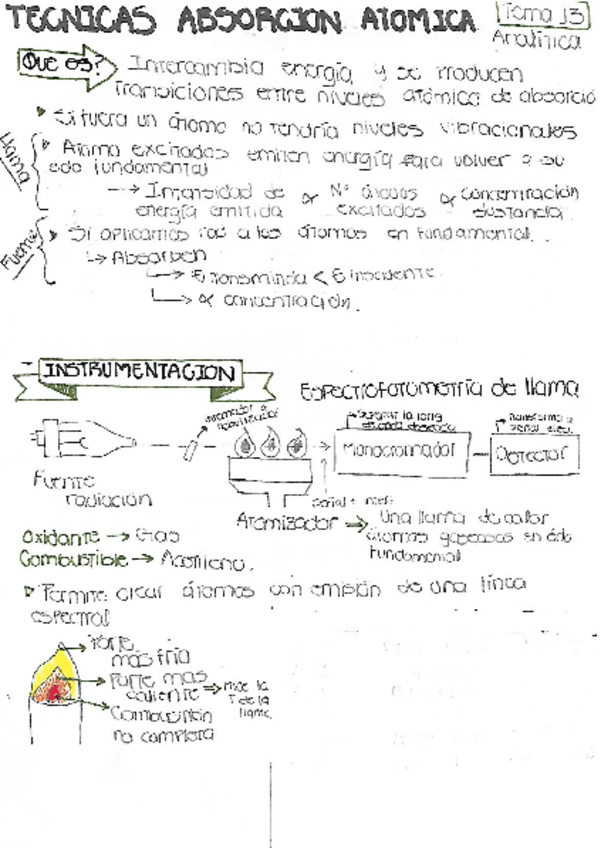 TECNICAS ABSORCION ATOMICA
Tema 13
Analítica
Que es?
Intercambia energía y se producen
transiciones entre niveles atómica de absorció
Si fuera un átomo no tendría niveles vibracionales
Llama
Atomo excitados emiten energía para volver a su
edo fundamental
→ Intensidad de energía emitida ∝ Nº átomos excitados ∝ concentración sustancia
Fuente
Si aplicamos rad a los átomos en fundamental.
↳ Absorben
→ E transmitida < E incidente
→ ∝ concentración.
- INSTRUMENTACION
Espectrofotometría de llama
Fuente
radiación
Atomizador
Monocromador
Detector
→ Una llama de calor
átomos gaseosos en edo
fundamental
Oxidante → Gas
Combustible → Acetileno.
Permite: crear átomos con emisión de una línea
espectral
Parte
mas fría
Parte mas
caliente
⇒ Mide la
T de la
llama
Combustión
no completa